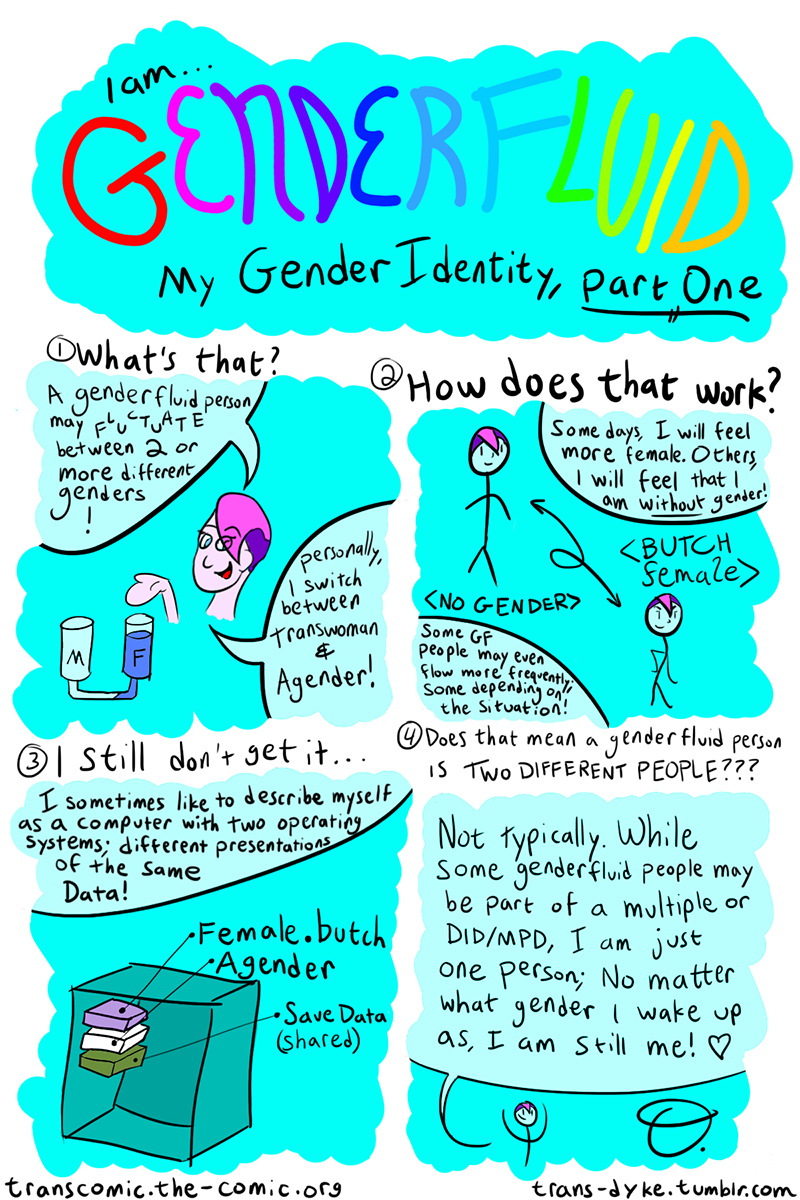 I am...
GENDERFLUID
My Gender Identity, Part One
① What's that?
A genderfluid person
may FLUCTUATE
between 2 or
more different
genders
!
personally,
I switch
between
transwoman
&
Agender!
M
F
② How does that work?
Some days, I will feel
more female. Others,
I will feel that I
am without gender!
<NO GENDER>
<BUTCH
female>
Some GF
People may even
flow more frequently;
Some depending on
the situation!
③ I still don't get it...
I sometimes like to describe myself
as a computer with two operating
systems; different presentations
of the same
Data!
Female.butch
Agender
Save Data
(shared)
④ Does that mean a genderfluid person
is TWO DIFFERENT PEOPLE???
Not typically. While
some genderfluid people may
be part of a multiple or
DID/MPD, I am just
one person; No matter
what gender I wake up
as, I am still me! ♡
transcomic.the-comic.org
trans-dyke.tumblr.com